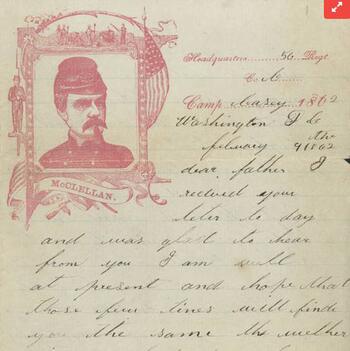 Headquarters 56 Regt.
Co A
Camp Casey 1862
McCLELLAN.
Washington D C
february the 9 1862
dear father I
receved your
leter to day
and was glad to hear
from you I am well
at present and hope that
those few lines will finde
you the same the wether